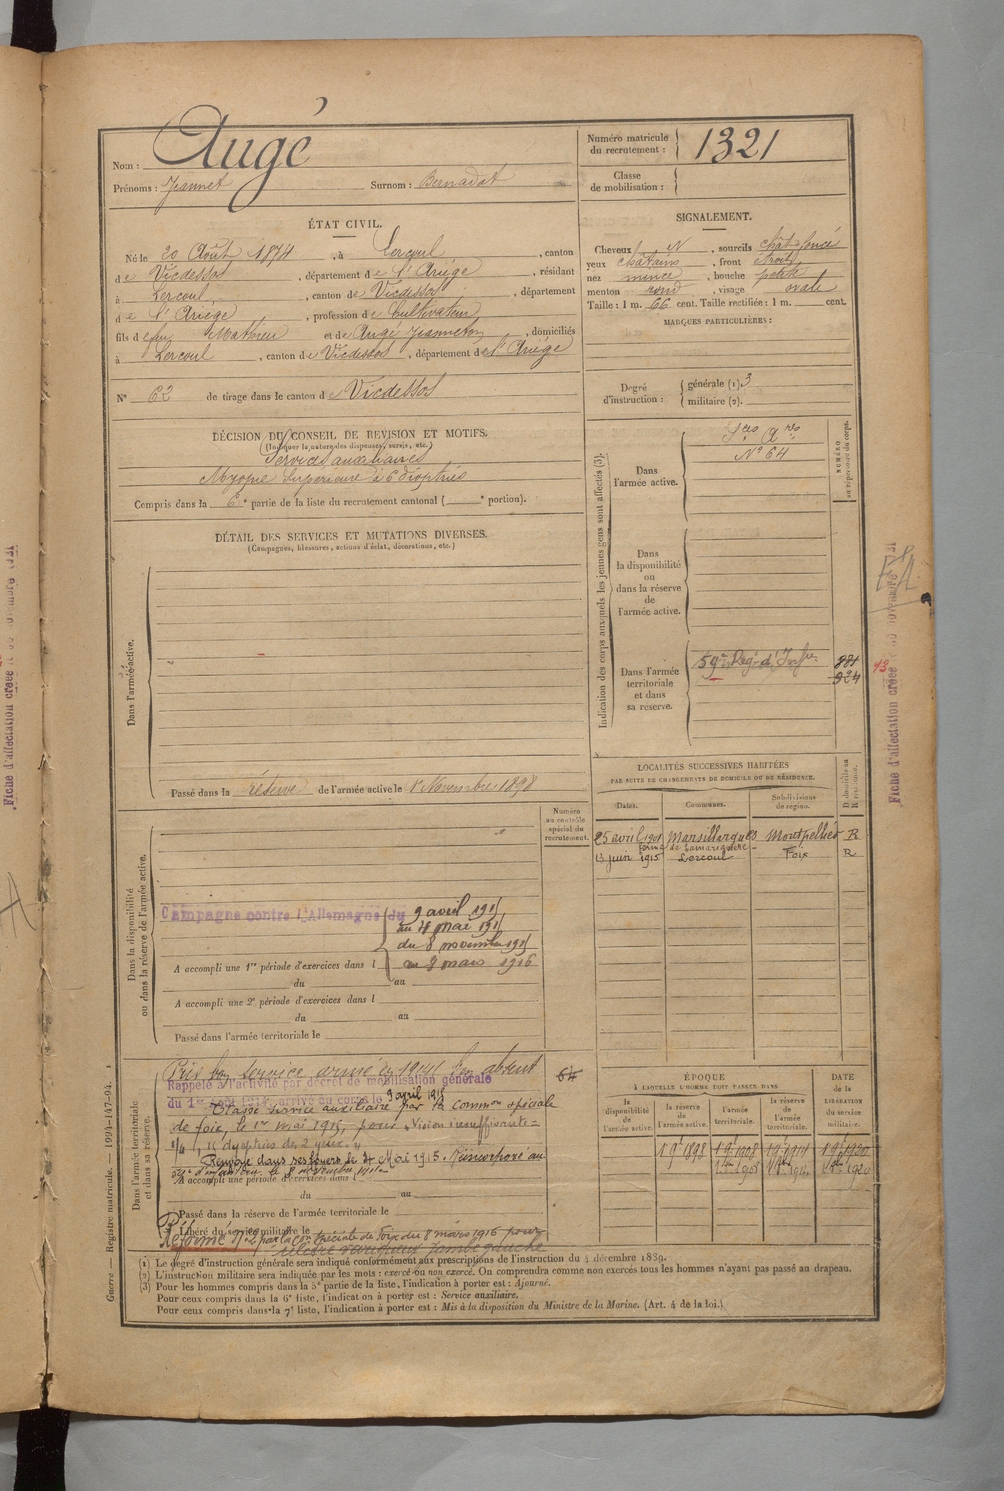 Nom : Augé
Prénoms : Jeannet Surnom : Bernadat
Numéro matricule du recrutement : 1321
Classe de mobilisation :
ÉTAT CIVIL.
Né le 20 Août 1874, à Lercoul, canton
de Vicdessos, département de l'Ariège, résidant
à Lercoul, canton de Vicdessos, département
de l'Ariège, profession de Cultivateur
fils de feu Mathieu et de Augé Jeanneton, domiciliés
à Lercoul, canton de Vicdessos, département de l'Ariège
N° 62 de tirage dans le canton de Vicdessos
SIGNALEMENT.
Cheveux N, sourcils chât. foncé
yeux châtains, front étroit
nez mince, bouche petite
menton rond, visage ovale
Taille : 1 m. 66 cent. Taille rectifiée : 1 m. cent.
MARQUES PARTICULIÈRES :
Degré d'instruction : générale (1) 3
militaire (2).
DÉCISION DU CONSEIL DE REVISION ET MOTIFS.
(Indiquer la nature des dispenses, sursis, etc.)
Services auxiliaires
Myopie Supérieure à 6 dioptries
Compris dans la 6e partie de la liste du recrutement cantonal ( e portion).
DÉTAIL DES SERVICES ET MUTATIONS DIVERSES.
(Campagnes, blessures, actions d'éclat, décorations, etc.)
Dans l'armée active.
Passé dans la réserve de l'armée active le 1er Novembre 1898
Indication des corps auxquels les jeunes gens sont affectés (3).
NUMÉRO au répertoire du corps.
Dans l'armée active.
Sces Ares
N° 64
Dans la disponibilité ou dans la réserve de l'armée active.
Dans l'armée territoriale et dans sa réserve.
59e Rég. d'Infie
924
LOCALITÉS SUCCESSIVES HABITÉES
PAR SUITE DE CHANGEMENTS DE DOMICILE OU DE RÉSIDENCE.
Dates. Communes. Subdivisions de région. D domicile ou R résidence.
25 avril 1901 Marsillargues Montpellier R
ferme de Tamariguière
13 juin 1915 Lercoul Foix R
Numéro au contrôle spécial du recrutement.
Dans la disponibilité ou dans la réserve de l'armée active.
Campagne contre l'Allemagne du 9 avril 1915
au 4 mai 1915
du 8 novembre 1915
au 8 mars 1916
A accompli une 1re période d'exercices dans l
du au
A accompli une 2e période d'exercices dans l
du au
Passé dans l'armée territoriale le
Dans l'armée territoriale et dans sa réserve.
Pris bon service armé en 1914 bon absent
64
Rappelé à l'activité par décret de mobilisation générale
du 1er août 1914, arrivé au corps le 9 avril 1915
Classé service auxiliaire par la common spéciale
de foix, le 1er mai 1915, pour "Vision insuffisante =
Renvoyé dans ses foyers le 4 Mai 1915. Réincorporé au
59e d'infanterie le 8 novembre 1915
A accompli une période d'exercices dans l
du au
Passé dans la réserve de l'armée territoriale le
Libéré du service militaire le
Réformé n° 2 par la con spéciale de Foix du 8 mars 1916 pour
ulcère variqueux jambe gauche
ÉPOQUE
À LAQUELLE L'HOMME DOIT PASSER DANS
DATE de la LIBÉRATION du service militaire.
la disponibilité de l'armée active. la réserve de l'armée active. l'armée territoriale. la réserve de l'armée territoriale.
(1) Le degré d'instruction générale sera indiqué conformément aux prescriptions de l'instruction du 4 décembre 1889.
(2) L'instruction militaire sera indiquée par les mots : exercé ou non exercé. On comprendra comme non exercés tous les hommes n'ayant pas passé au drapeau.
(3) Pour les hommes compris dans la 5e partie de la liste, l'indication à porter est : Ajourné.
Pour ceux compris dans la 6e liste, l'indication à porter est : Service auxiliaire.
Pour ceux compris dans la 7e liste, l'indication à porter est : Mis à la disposition du Ministre de la Marine. (Art. 4 de la loi.)
Guerre — Registre matricule. — 1994-147-94.
Fiche d'affectation créée